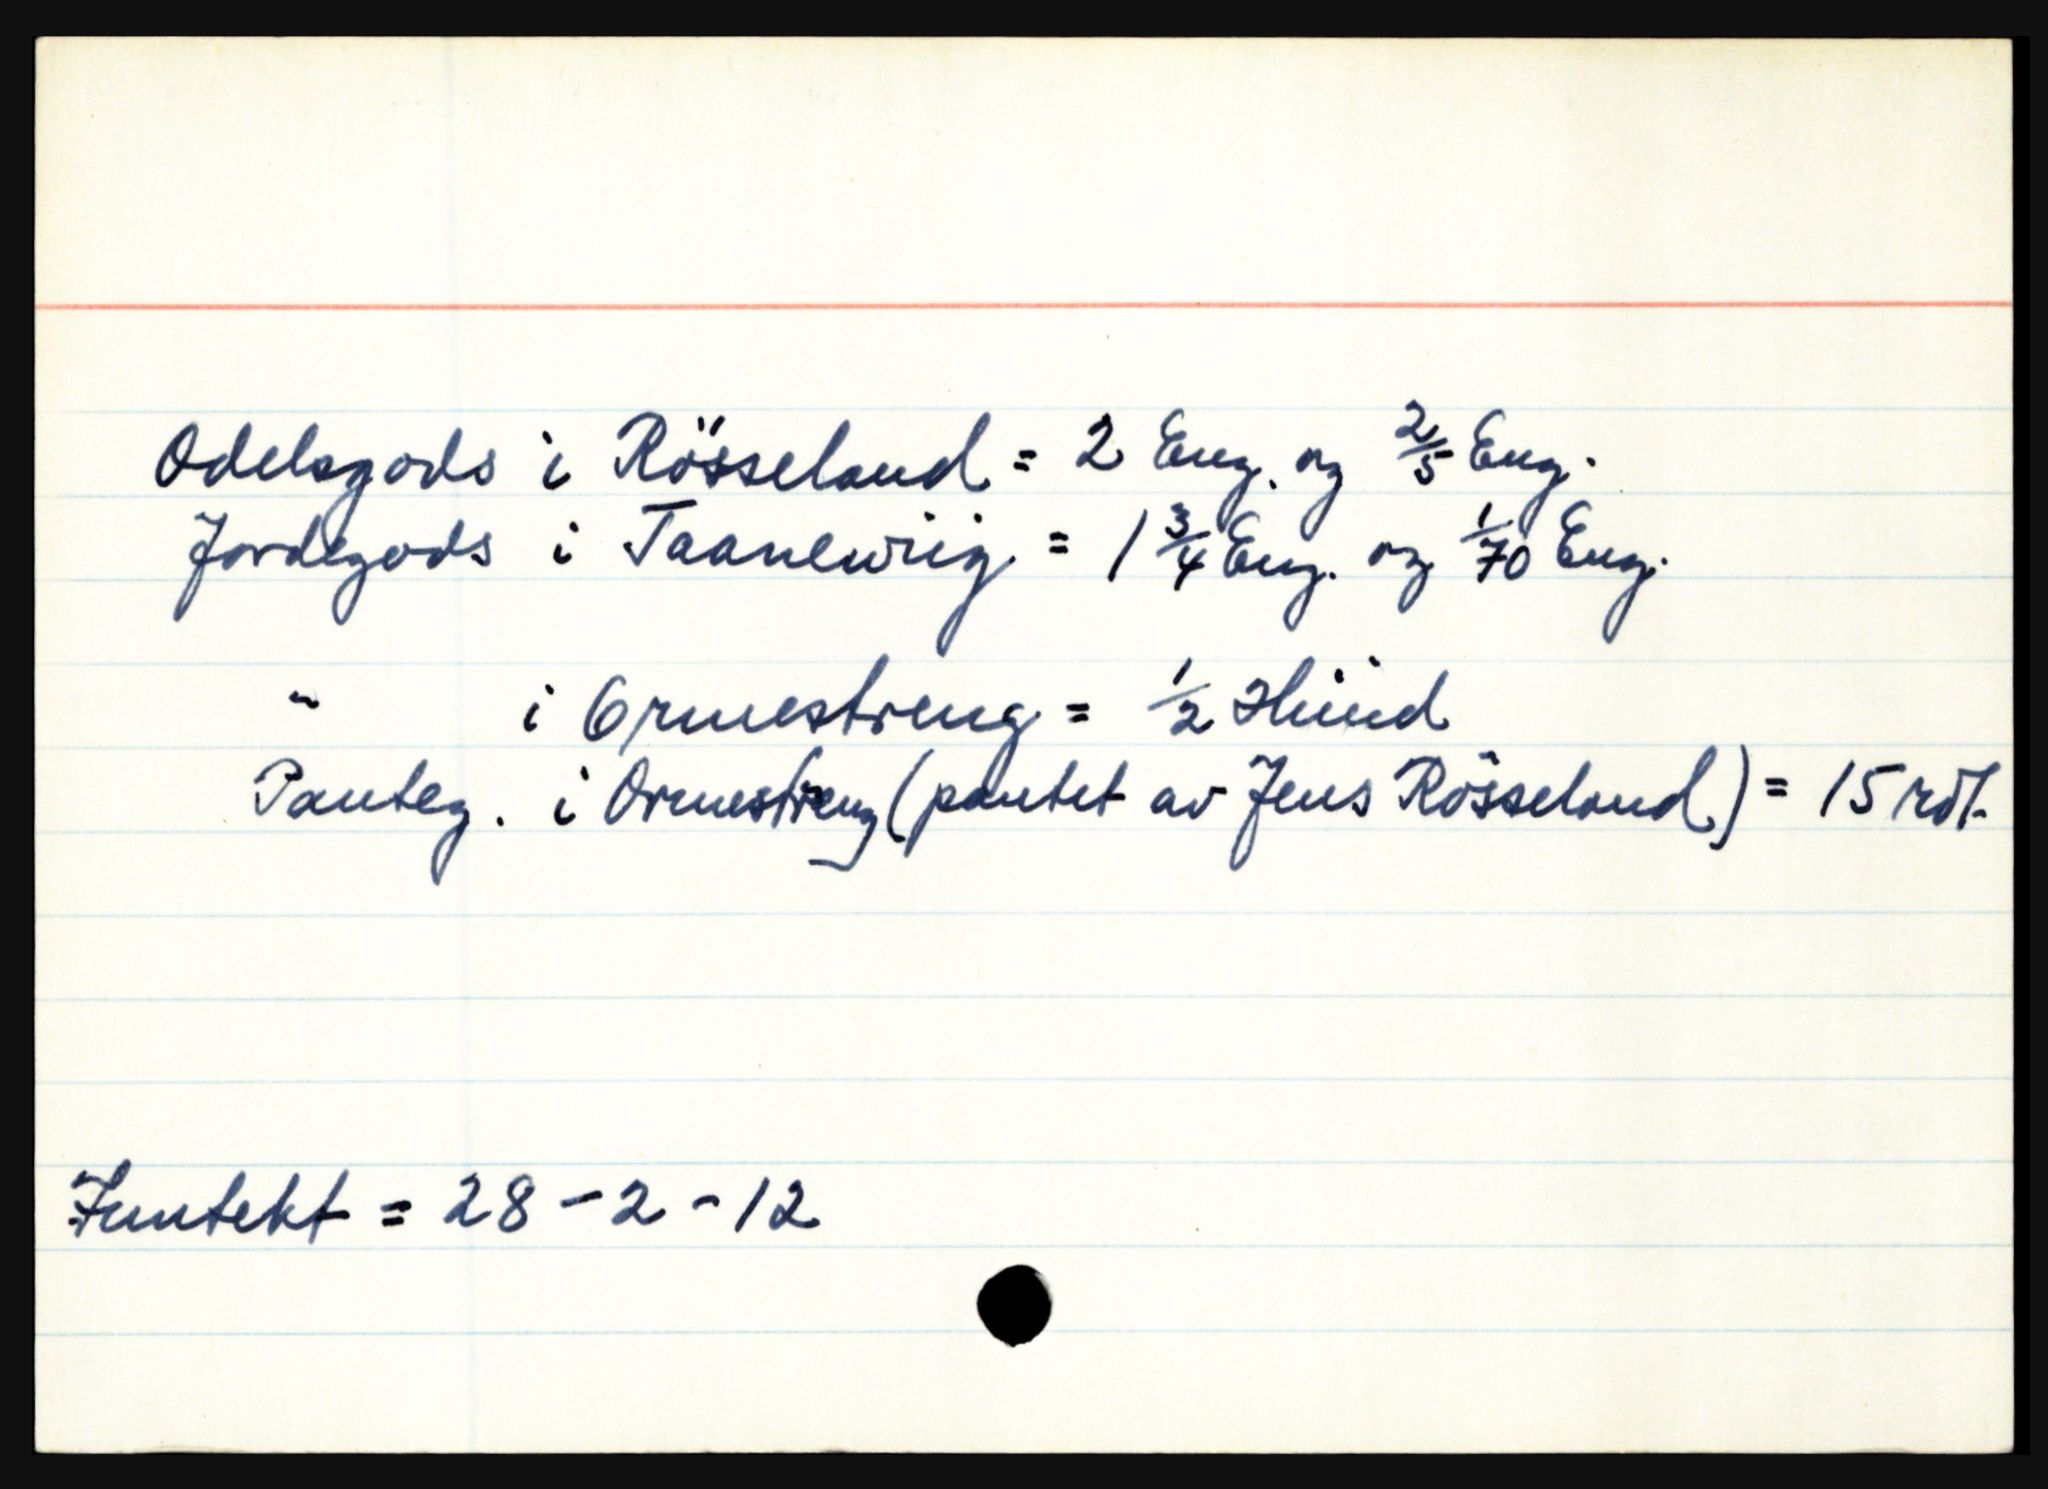 Odelsgods i Rösseland = 2 Eng. og 2/5 Eng.
Jordegods i Taanewiig = 1 3/4 Eng. og 1/70 Eng.
" i Ormestreng = 1/2 Huud
Panteg. i Ormestreng (pantet av Jens Rösseland) = 15 rdl.
Inntekt = 28 - 2 - 12